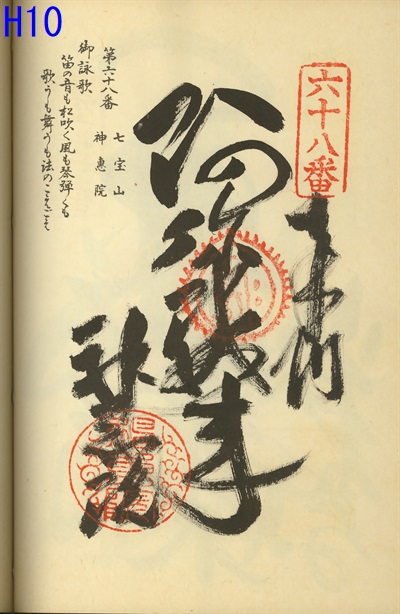 H10
六十八番
奉納
阿弥陀如来
神恵院
第六十八番
七宝山
神恵院
御詠歌
笛の音も松吹く風も琴弾くも
歌うも舞うも法のこゑごゑ